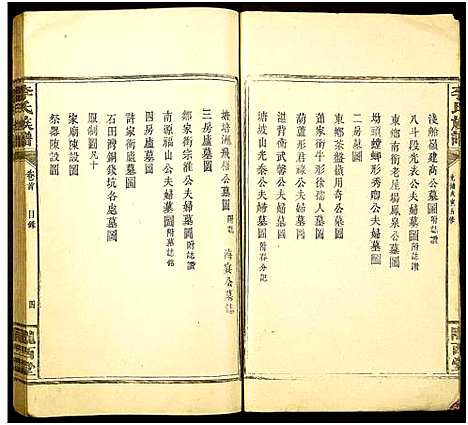 李氏族譜
淺船嶺建高公墓圖附誌
八斗段光表公夫婦墓圖附誌讚
東鄉南衝老屋場鳳泉公墓圖
坳頭螳螂形秀卿公夫婦墓圖
二房墓圖
東鄉茶盤嶺用奇公墓圖
董家衝牛形徐孺人墓圖
葫蘆形君榮公夫婦墓圖
湛背衡武馨公夫婦墓圖
塘坡山光泰公夫婦墓圖附春分記
塘培湖飛相公墓圖附誌
海宴公墓誌
三房廬墓圖
鄒家衝宗淮公夫婦墓圖附誌讚
南源福山公夫婦墓圖附墓誌銘
許家衝廬墓圖
石田灣銅錢坑各處墓圖
服制圖凡十
家廟陳設圖
祭器陳設圖
李氏族譜
卷首
目錄
四
隴西堂